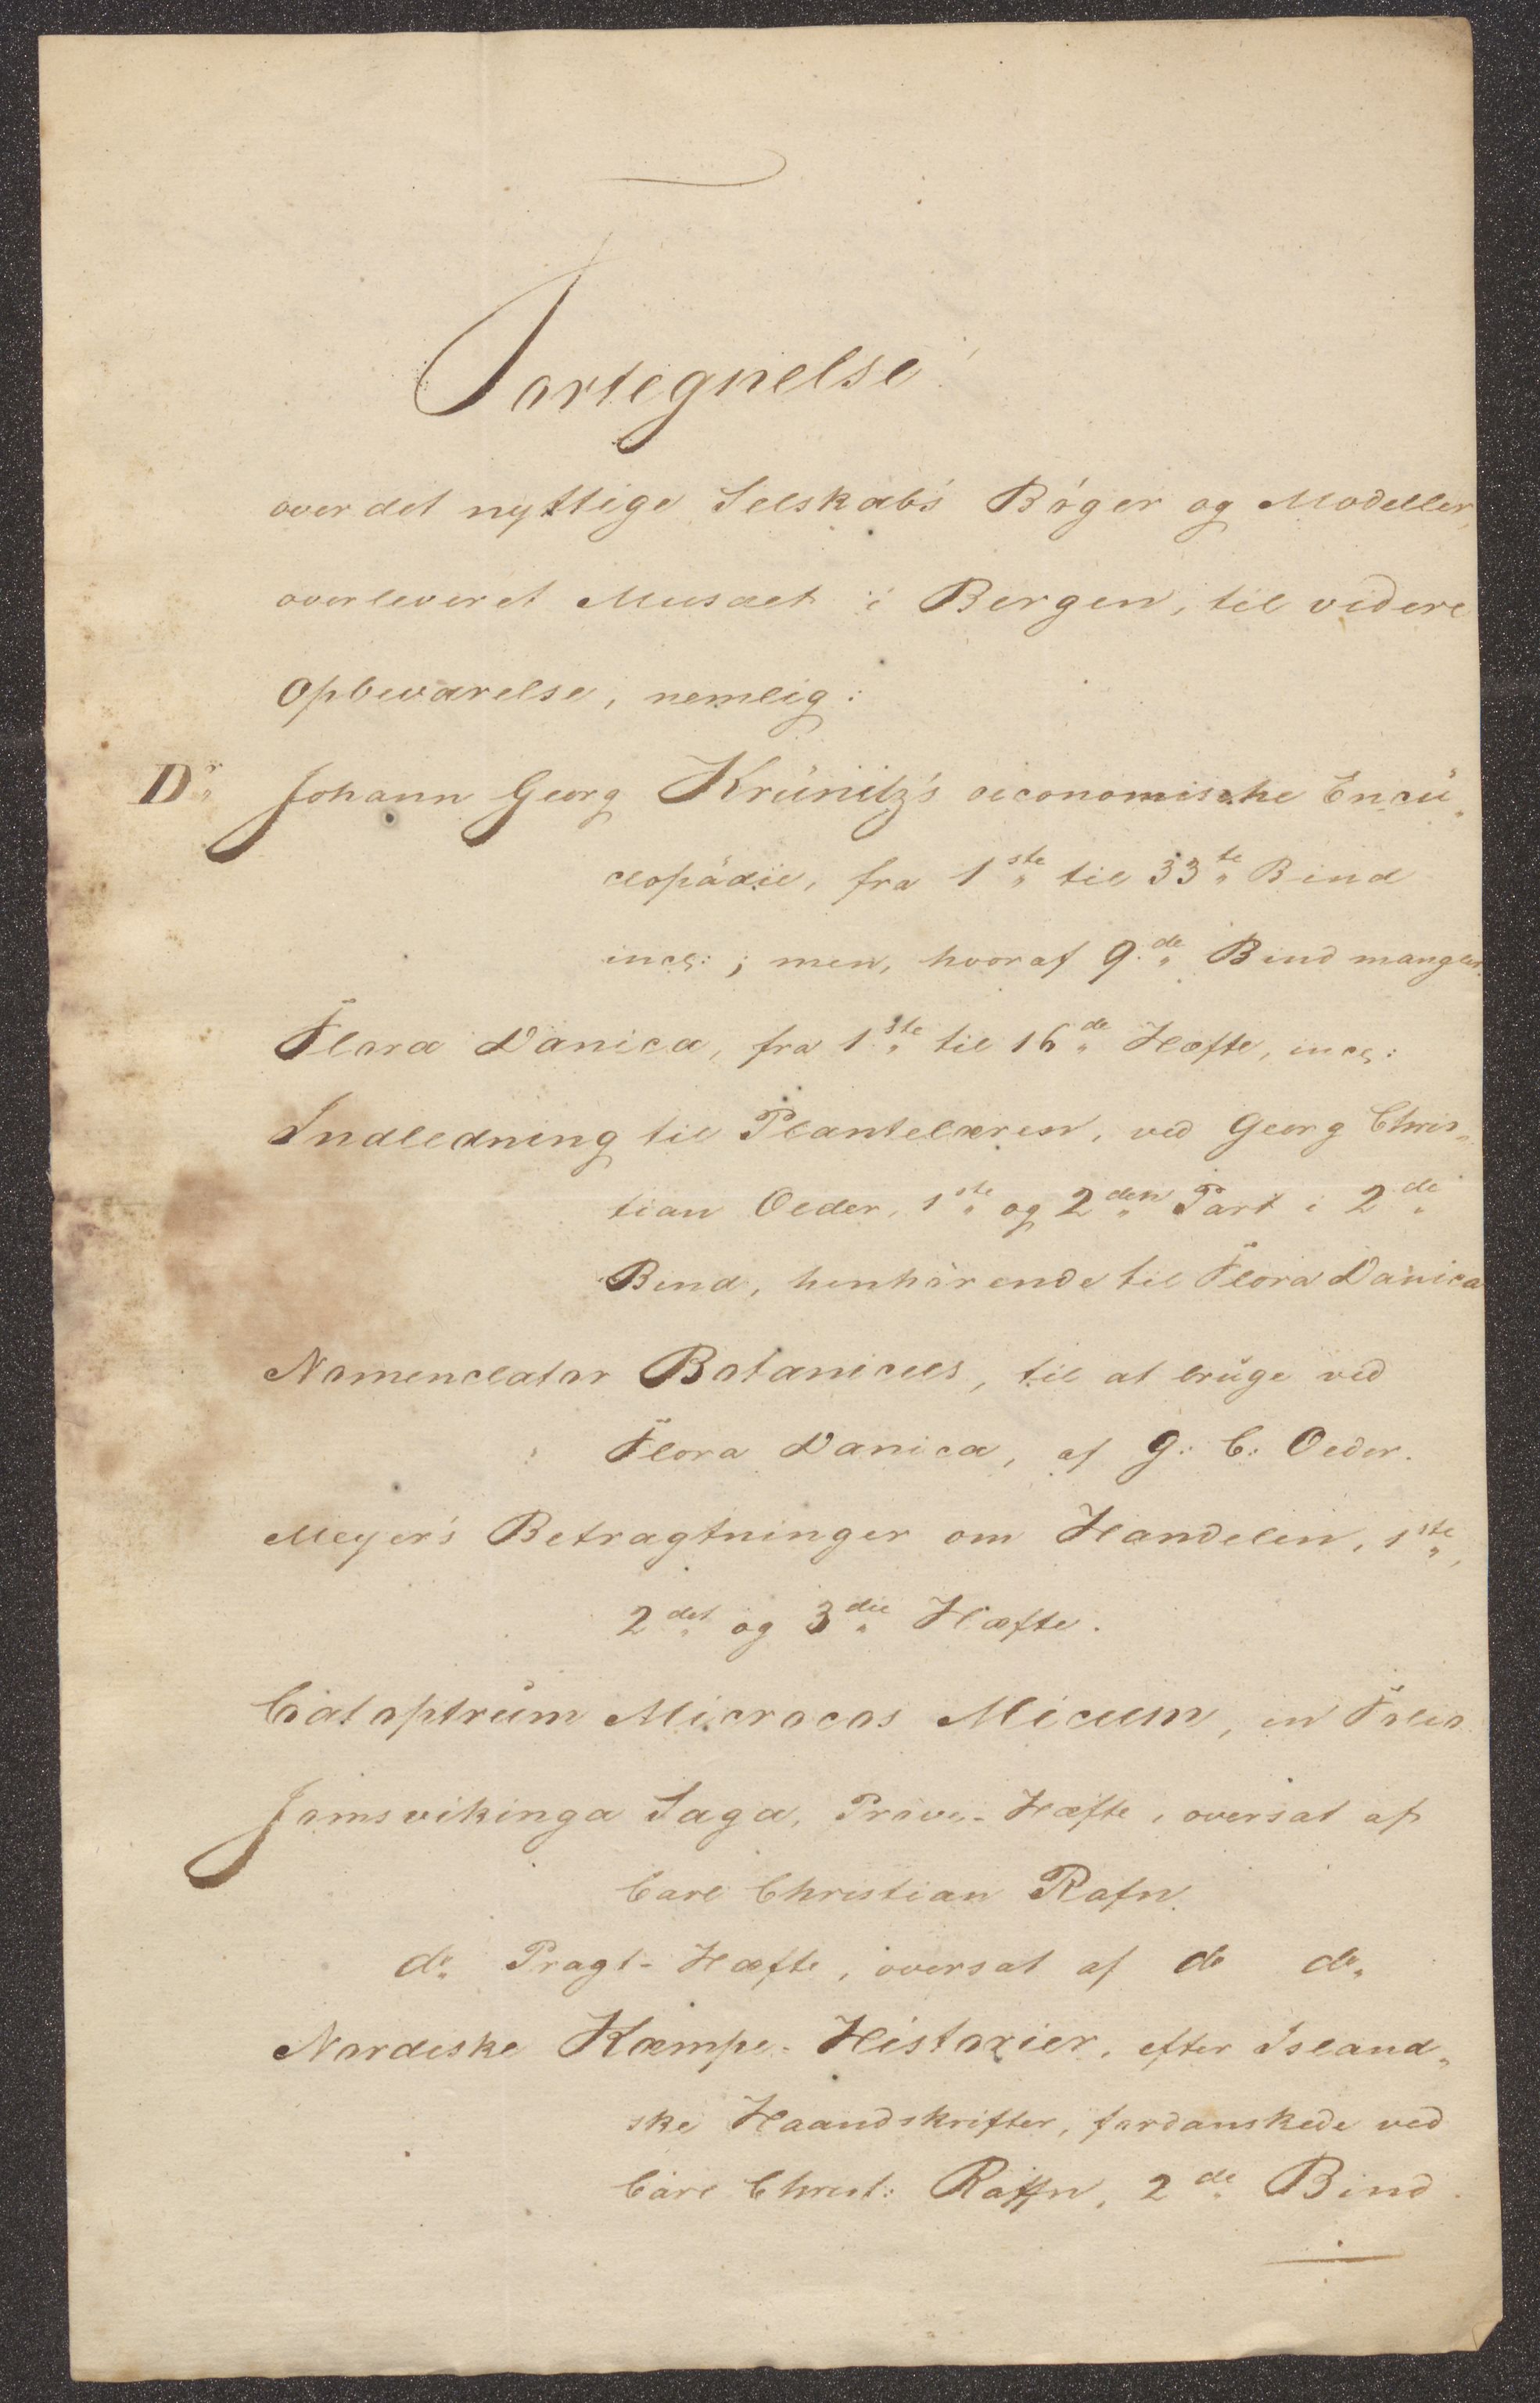 Fortegnelse
over det nyttige Selskabs Bøger og Modeller,
overleveret Musæet i Bergen, til videre
Opbevarelse, nemlig:
Dr Johann Georg Krünitz's oiconomische Encü„
clopädie, fra 1ste til 33te Bind
incl:; men, hvoraf 9de Bind mangler.
Flora Danica, fra 1ste til 16de Hæfte, incl:
Indledning til Plantelæren, ved Georg Chris„
tian Oeder, 1ste og 2den Part i 2de
Bind, henhørende til Flora Danica
Nomenclator Botanicus, til at brüge ved
Flora Danica, af G: C: Oeder.
Meyer's Betragtninger om Handelen, 1ste,
2det og 3die Hæfte.
Catoptrüm Microcos Micum, in Folio
Jomsvikinga Saga, Prøve-Hæfte, oversat af
Carl Christian Rafn.
do Pragt-Hæfte, oversat af do do
Nordiske Kæmpe-Historier, efter Island„
ske Haandskrifter, fordanskede ved
Carl Christ: Raffn, 2de Bind.